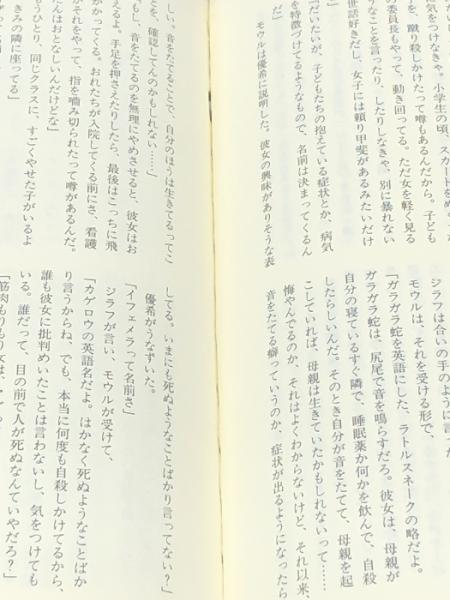 気をつけなきゃ。小学生の頃、スカートをめ
蹴り殺しかけたって噂もあるんだから。子ども
の委員長もやって、動き回ってる。ただ女を軽く見る
うなことを言ったり、したりしなきゃ、別に暴れない
世話好きだし、女子には頼り甲斐があるみたいだけ
「だいたいが、子どもたちの抱えている症状とか、病気
を特徴づけてるようなもので、名前は決まってくるん
モウルは優希に説明した。彼女の興味がありそうな表
ジラフは合いの手のように言
モウルは、それを受ける形で、
「ガラガラ蛇を英語にした、ラトルスネークの略だよ。
ガラガラ蛇は、尻尾で音を鳴らすだろ。彼女は、母親が
自分の寝ているすぐ隣で、睡眠薬か何かを飲んで、自殺
したらしいんだ。そのとき自分が音をたてて、母親を起
こしていれば、母親は生きていたかもしれないって……
悔やんでるのか、それはよくわからないけど、それ以来、
音をたてる癖っていうのか、症状が出るようになったら
しい。音をたてることで、自分のほうは生きてるってこ
とを、確認してんのかもしれない……」
もし、音をたてるのを無理にやめさせると、彼女はお
えるよ。手足を押さえたりしたら、最後はこっちに飛
かかってくる。おれたちが入院してくる前にさ、看護
がそれをやって、指を噛み切られたって噂があるんだ。
んだはおとなしいんだけどな」
もうひとり、同じクラスに、すごくやせた子がいるよ
きの隣に座ってる」
してる。いまにも死ぬようなことばかり言ってない？」
優希がうなずいた。
「イフェメラって名前さ」
ジラフが言い、モウルが受けて、
「カゲロウの英語名だよ。はかなく死ぬようなことばか
り言うからね、でも、本当に何度も自殺しかけてるから、
誰も彼女に批判めいたことは言わないし、気をつけても
いる。誰だって、目の前で人が死ぬなんていやだろ？」
「筋肉もりもり